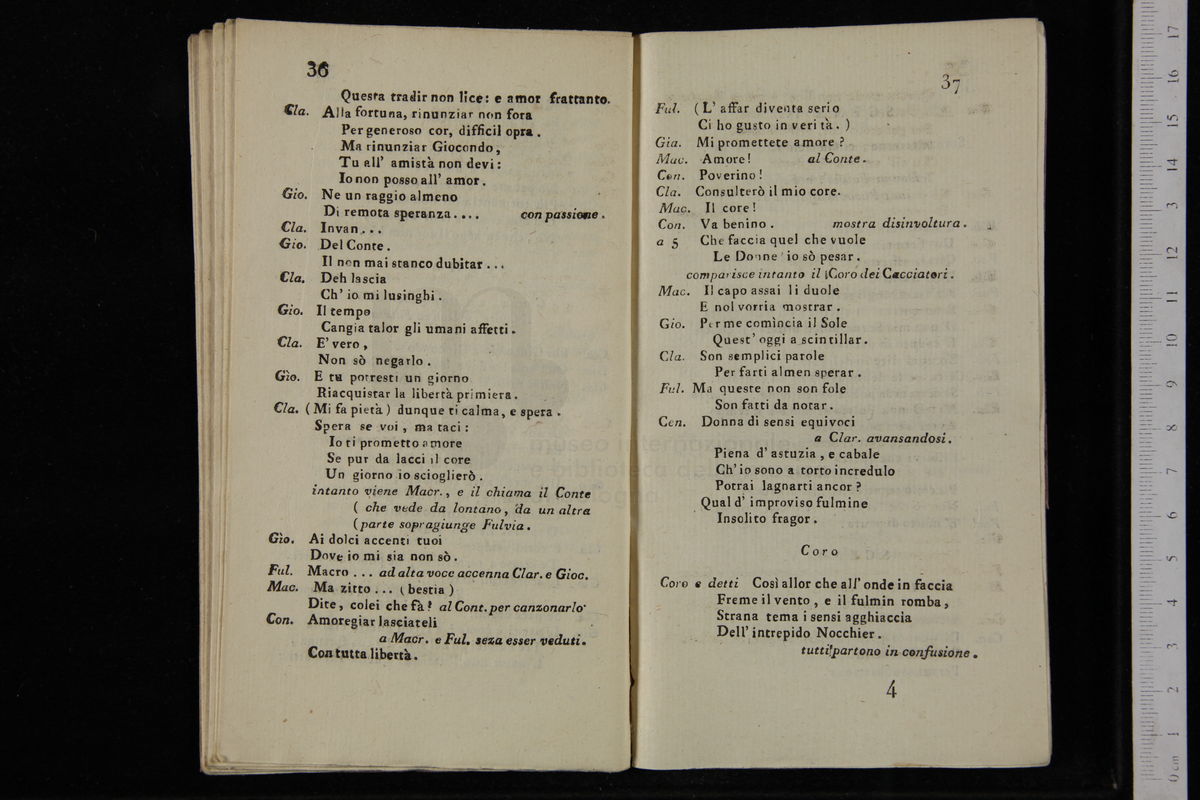 36
Questa tradir non lice: e amor frattanto.
Cla. Alla fortuna, rinunziar non fora
Per generoso cor, difficil opra .
Ma rinunziar Giocondo,
Tu all' amistà non devi:
Io non posso all' amor .
Gio. Ne un raggio almeno
Di remota speranza . . . . con passione .
Cla. Invan . . .
Gio. Del Conte .
Il non mai stanco dubitar . . .
Cla. Deh lascia
Ch' io mi lusinghi .
Gio. Il tempo
Cangia talor gli umani affetti .
Cla. E' vero ,
Non sò negarlo .
Gio. E tu potresti un giorno
Riacquistar la libertà primiera .
Cla. ( Mi fa pietà ) dunque ti calma, e spera .
Spera se voi , ma taci :
Io ti prometto amore
Se pur da lacci il core
Un giorno io scioglierò .
intanto viene Macr. , e il chiama il Conte
( che vede da lontano , da un altra
( parte sopragiunge Fulvia .
Gio. Ai dolci accenti tuoi
Dove io mi sia non sò .
Ful. Macro . . . ad alta voce accenna Clar. e Gioc.
Mac. Ma zitto . . . ( bestia )
Dite , colei che fà ? al Cont. per canzonarlo
Con. Amoregiar lasciateli
a Macr. e Ful. seza esser veduti .
Con tutta libertà .
37
Ful. ( L' affar diventa serio
Ci ho gusto in verità . )
Gia. Mi promettete amore ?
Mac. Amore ! al Conte .
Con. Poverino !
Cla. Consulterò il mio core.
Mac. Il core !
Con. Va benino . mostra disinvoltura .
a 5 Che faccia quel che vuole
Le Donne io sò pesar .
comparisce intanto il Coro dei Cacciatori .
Mac. Il capo assai li duole
E nol vorria mostrar .
Gio. Per me comincia il Sole
Quest' oggi a scintillar .
Cla. Son semplici parole
Per farti almen sperar .
Ful. Ma queste non son fole
Son fatti da notar .
Con. Donna di sensi equivoci
a Clar. avansandosi .
Piena d' astuzia , e cabale
Ch' io sono a torto incredulo
Potrai lagnarti ancor ?
Qual d' improviso fulmine
Insolito fragor .
Coro
Coro e detti Così allor che all' onde in faccia
Freme il vento , e il fulmin romba ,
Strana tema i sensi agghiaccia
Dell' intrepido Nocchier .
tutti partono in confusione .
4
museo internazionale
e biblioteca
0 cm 1 2 3 4 5 6 7 8 9 10 11 12 13 14 15 16 17